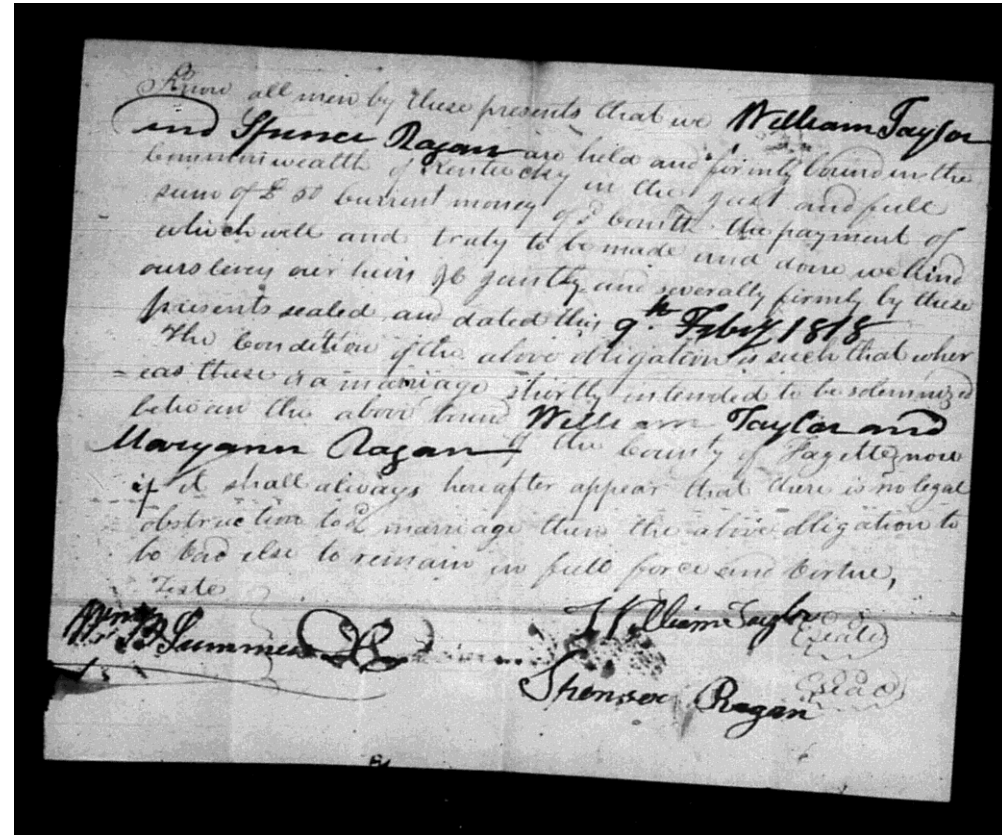 Know all men by these presents that we William Taylor
and Spence Ragan are held and firmly bound in the
Commonwealth of Kentucky in the just and full
sum of £ 50 current money of sd Comth the payment of
which well and truly to be made and done we bind
ourselves our heirs &c jointly and severally firmly by these
presents sealed and dated this 9th Feby 1818
The Condition of the above obligation is such that wher
=eas there is a marriage shortly intended to be solemnized
between the above bound William Taylor and
Maryann Ragan of the County of Fayette now
if it shall always hereafter appear that there is no legal
obstruction to sd marriage then the above obligation to
be void else to remain in full force and virtue,
Teste
B Summers
William Taylor (Seal)
Spenser Ragan (Seal)